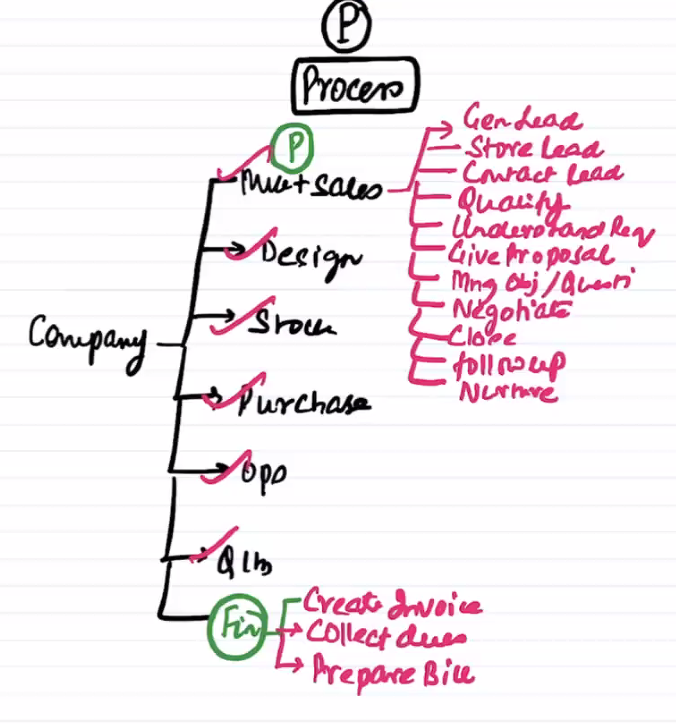 P
Process
P
Mkt + Sales
Gen Lead
Store Lead
Contact Lead
Qualify
Understand Req
Give Proposal
Mng Obj /
Negotiate
Close
follow up
Nurture
Design
Stock
Company
Purchase
Ops
Fin
Create Invoice
Collect dues
Prepare Bill